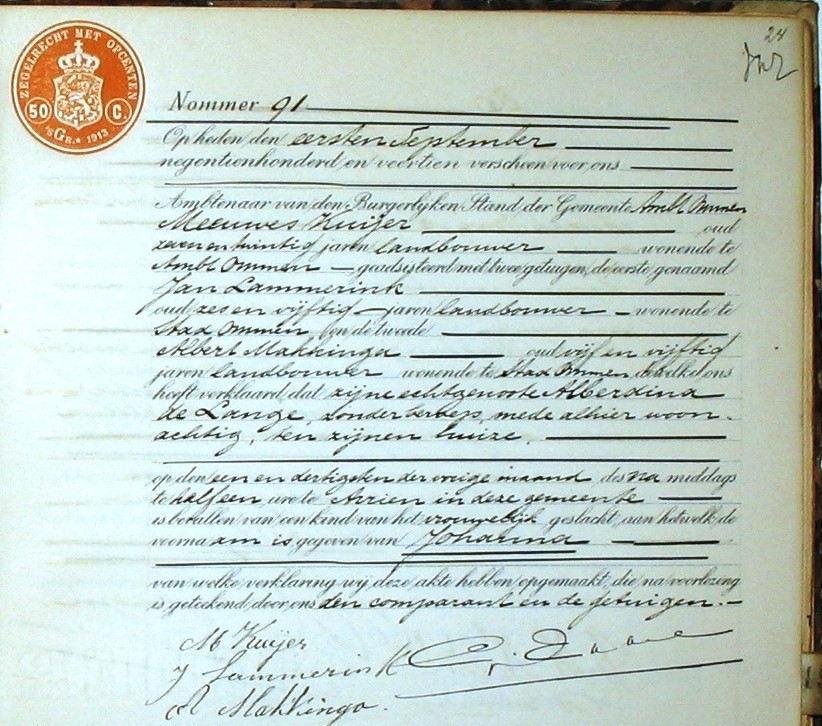 24
ZEGELRECHT MET OPCENTEN
50 C.
'sGR. * 1913
Nommer 91
Op heden den eersten September
negentienhonderd en veertien verscheen voor ons
Ambtenaar van den Burgerlijken Stand der Gemeente Ambt Ommen
Meeuwes Kuijer oud
zeven en twintig jaren landbouwer wonende te
Ambt Ommen geadsisteerd met twee getuigen, de eerste genaamd
Jan Lammerink
oud zes en vijftig jaren landbouwer wonende te
Stad Ommen en de tweede
Albert Makkinga oud vijf en vijftig
jaren landbouwer wonende te Stad Ommen, dewelke ons
heeft verklaard, dat zijne echtgenoote Alberdina
de Lange, zonder beroep, mede alhier woon-
achtig, ten zijnen huize,
op den een en dertigsten der vorige maand des na middags
te half een ure te Arrien in deze gemeente
is bevallen van een kind van het vrouwelijk geslacht, aan hetwelk de
voornaam is gegeven van Johanna
van welke verklaring wij deze akte hebben opgemaakt, die na voorlezing
is geteekend door ons den comparant en de getuigen.
M Kuijer
J Lammerink
A Makkinga.